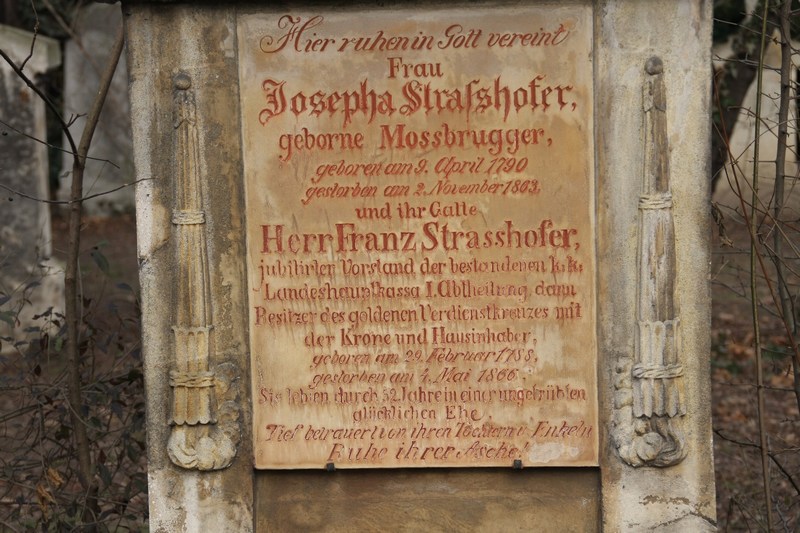 Hier ruhen in Gott vereint
Frau
Josepha Straſshofer,
geborne Mossbrugger,
geboren am 9. April 1790
gestorben am 2. November 1863,
und ihr Gatte
Herr Franz Strasshofer,
jubilirter Vorstand der bestandenen k.k.
Landeshauptkassa I. Abtheilung, dann
Besitzer des goldenen Verdienstkreuzes mit
der Krone und Hausinhaber,
geboren am 29. Februar 1788,
gestorben am 4. Mai 1866.
Sie lebten durch 52 Jahre in einer ungetrübten
glücklichen Ehe.
Tief betrauert von ihren Töchtern u. Enkeln
Ruhe ihrer Asche!